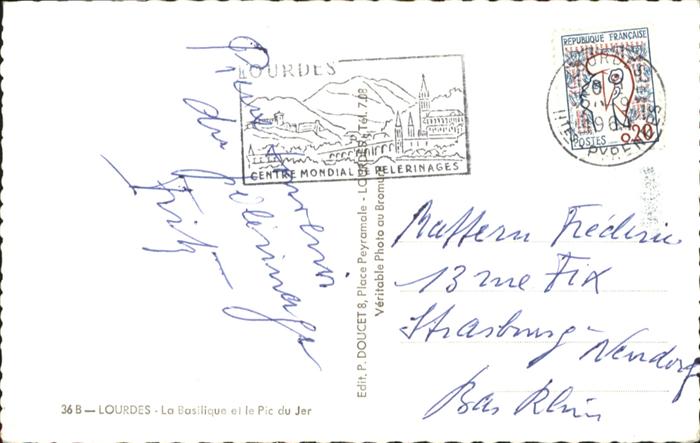 LOURDES
CENTRE MONDIAL DE PELERINAGES
REPUBLIQUE FRANÇAISE
0.20
POSTES
Pieux souvenir
du pélerinage
Fritz
Edit. P. DOUCET 8, Place Peyramale - LOURDES - Tél. 7.08
Véritable Photo au Bromure
Maffern Fréderic
13 rue Fix
Strasbourg-Neudorf
Bas Rhin
36 B — LOURDES - La Basilique et le Pic du Jer